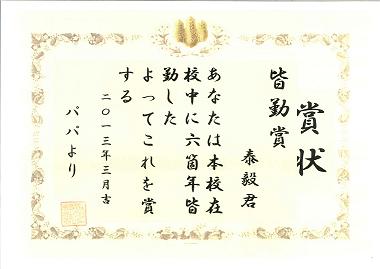 賞状
皆勤賞
泰毅君
あなたは本校在
校中に六箇年皆
勤した
よってこれを賞
する
二〇一三年三月吉
パパより